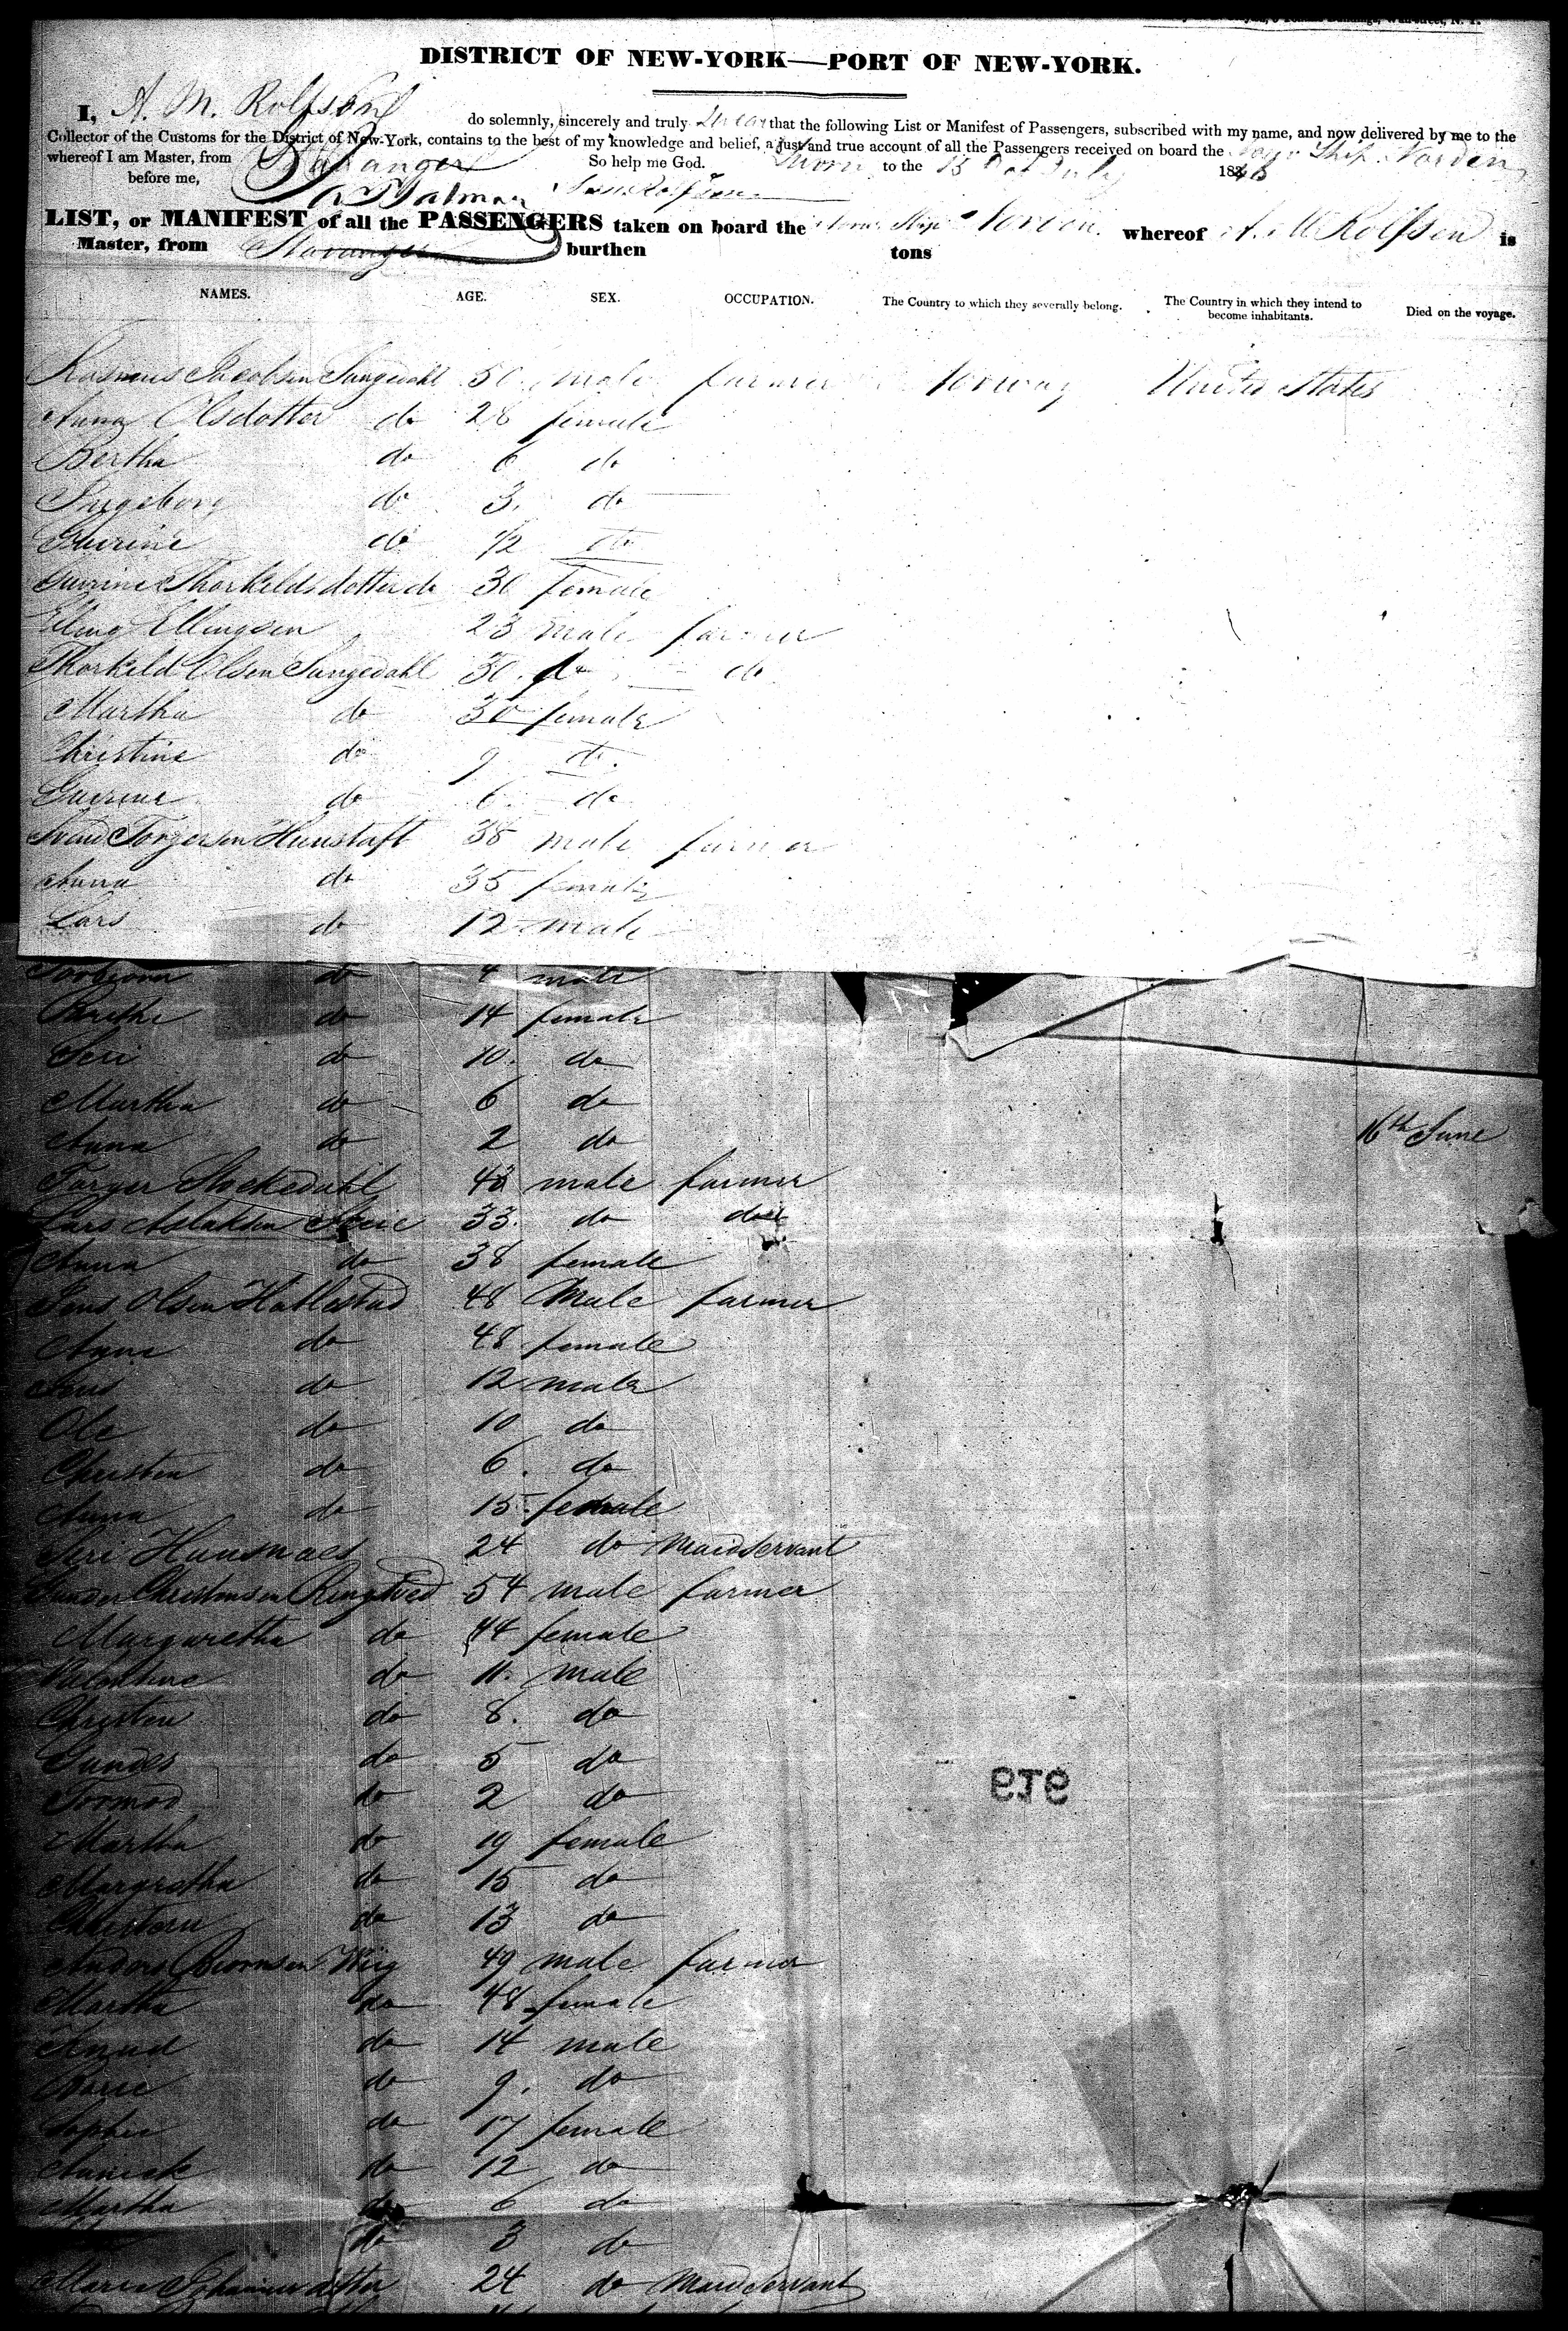 DISTRICT OF NEW-YORK—PORT OF NEW-YORK.
I, A. M. Rolfson do solemnly, sincerely and truly Swear that the following List or Manifest of Passengers, subscribed with my name, and now delivered by me to the
Collector of the Customs for the District of New-York, contains to the best of my knowledge and belief, a just and true account of all the Passengers received on board the Ship Norden
whereof I am Master, from Stavanger So help me God. Sworn to the 15 July 18
before me,
LIST, or MANIFEST of all the PASSENGERS taken on board the Ship Norden whereof A. M Rolfsen is
Master, from Stavanger burthen tons
NAMES. AGE. SEX. OCCUPATION. The Country to which they severally belong. The Country in which they intend to become inhabitants. Died on the voyage.
Rasmus Jacobsen Sangedahl 50 male farmer Norway United States
Anna Olsdotter do 28 female
Bertha do 6 do
Ingeborg do 3. do
Guirine do 1/2 do
Guirine Thorkeldsdotter do 30 female
Elling Ellingsen 23 male farmer
Thorkild Olsen Sangedahl 30. do do
Martha do 30 female
Christine do 9 do
Guirine do 6 do
Svend Torgersen 38 male farmer
Anna do 35 female
Lars do 12 male
do 4 male
Berthe do 14 female
Seri do 10. do
Martha do 6 do
Anna do 2 do 16th June
Torger Stockedahl male farmer
Lars Aslaksen 33. do do
Anna do 38 female
Jens Olsen Hallestad 48 Male farmer
Anne do 48 female
Jens do 12 male
Ole do 10 do
Christen do 6. do
Anna do 15 female
Seri Hausnaes 24 do Maidservant
Gunder Christensen 54 male farmer
Margaretha do 44 female
Valentine do 11. male
Christen do 8. do
Gunder do 5 do
Tormod do 2 do
Martha do 19 female
Margretha do 15 do
do 13 do
Anders Biornsen Wiig 49 male farmer
Martha do 48 female
Knud do 14 male
do 9. do
Sophie do 17 female
do 12 do
Martha do 6 do
do 3 do
Maria 24 do Maidservant
919